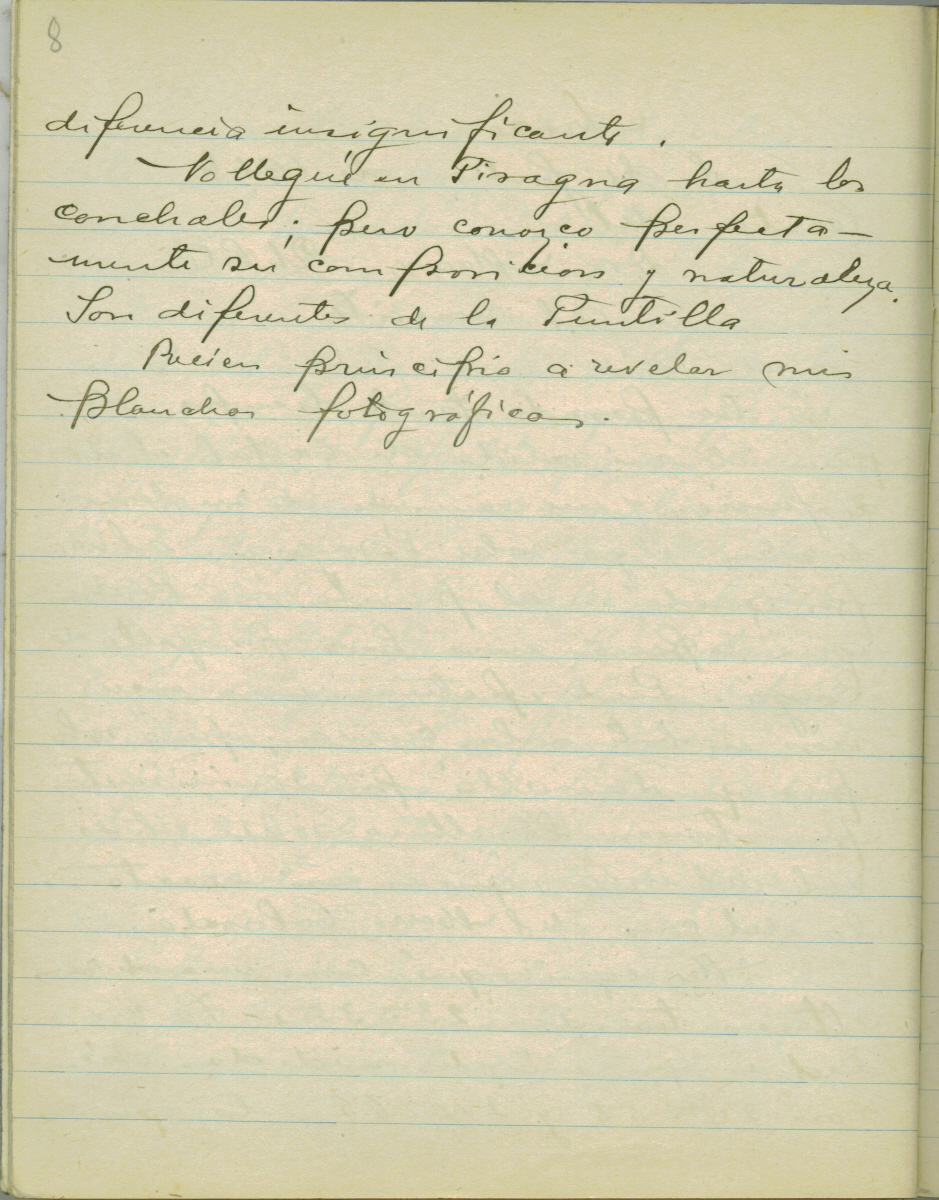 8
diferencia insignificante.
No llegué en Pisagua hasta los
conchales; pero conozco perfecta-
mente su composicion y naturaleza.
Son diferentes de la Puntilla
Recien principio a revelar mis
planchas fotográficas.